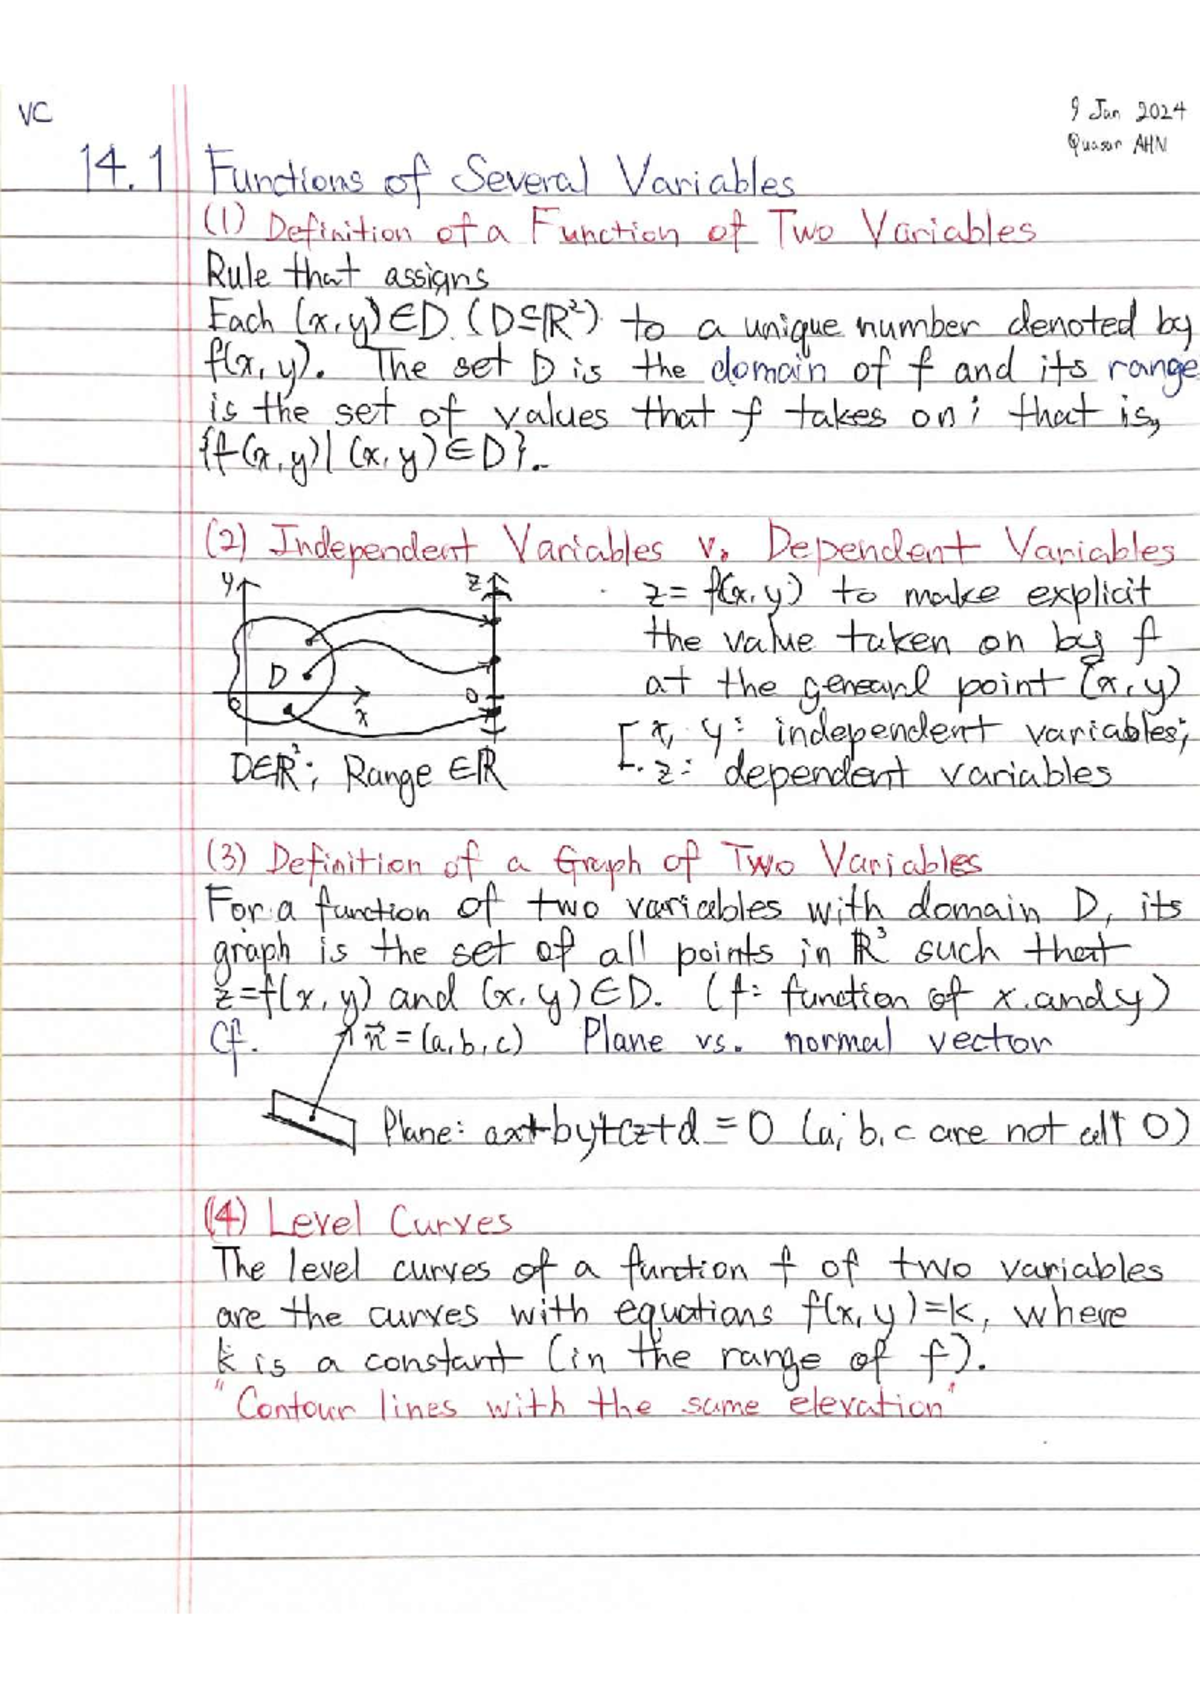 VC
9 Jan 2024
Quasar AHN
14.1 Functions of Several Variables
(1) Definition of a Function of Two Variables
Rule that assigns
Each (x, y)∈D (D⊆ℝ²) to a unique number denoted by
f(x, y). The set D is the domain of f and its range
is the set of values that f takes on; that is,
{f(x, y)| (x, y)∈D}.
(2) Independent Variables v. Dependent Variables
y z
D
0 x 0
D∈ℝ²; Range ∈ℝ
z = f(x, y) to make explicit
the value taken on by f
at the genearl point (x, y)
x, y: independent variables;
z: dependent variables
(3) Definition of a Graph of Two Variables
For a function of two variables with domain D, its
graph is the set of all points in ℝ³ such that
z=f(x, y) and (x, y)∈D. (f: function of x and y)
Cf. n⃗ = (a, b, c) Plane vs. normal vector
Plane: ax+by+cz+d = 0 (a, b, c are not all 0)
(4) Level Curves
The level curves of a function f of two variables
are the curves with equations f(x, y)=k, where
k is a constant (in the range of f).
"Contour lines with the same elevation"